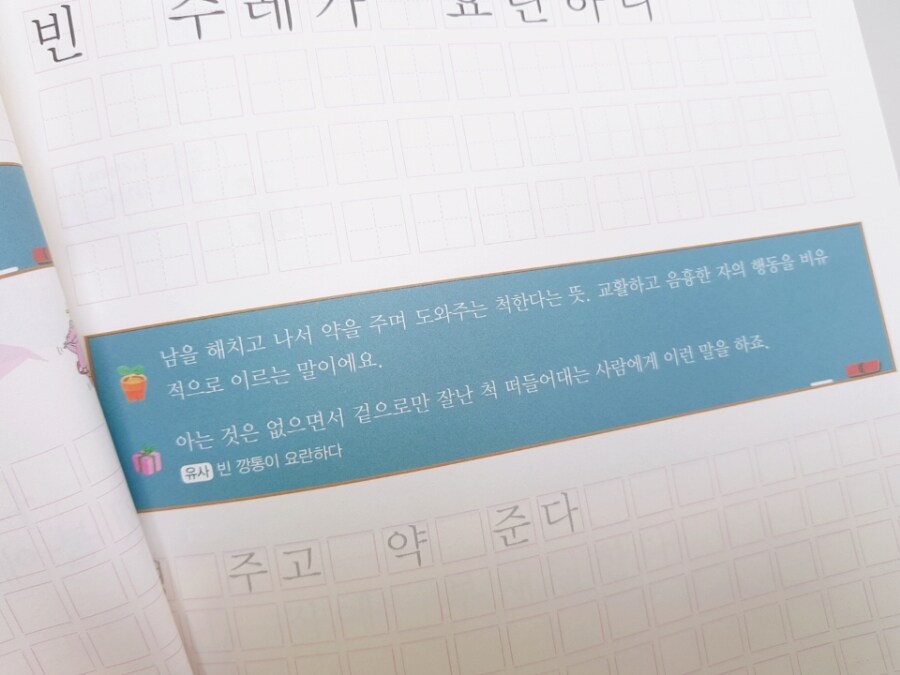 빈 수레가 요란하다
남을 해치고 나서 약을 주며 도와주는 척한다는 뜻. 교활하고 음흉한 자의 행동을 비유
적으로 이르는 말이에요.
아는 것은 없으면서 겉으로만 잘난 척 떠들어대는 사람에게 이런 말을 하죠.
유사 빈 깡통이 요란하다
주고 약 준다